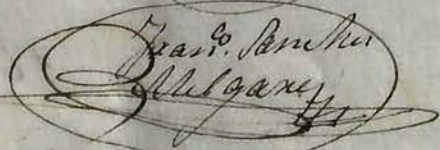 Fran.co Sanches
Melgarez